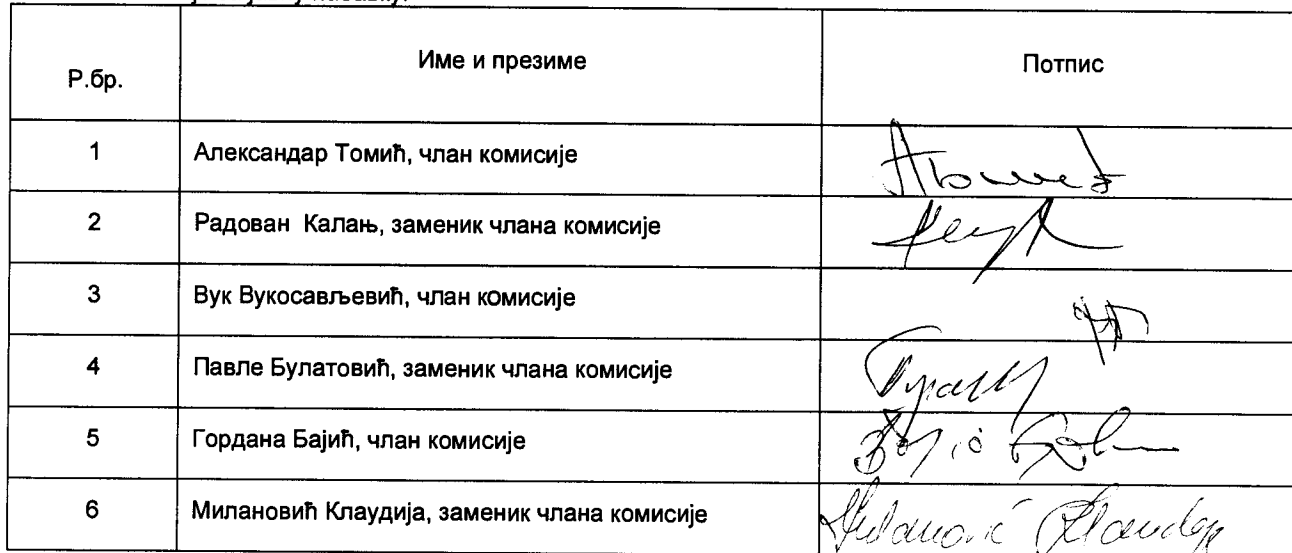 Р.бр. Име и презиме Потпис
1 Александар Томић, члан комисије
2 Радован Калањ, заменик члана комисије
3 Вук Вукосављевић, члан комисије
4 Павле Булатовић, заменик члана комисије
5 Гордана Бајић, члан комисије
6 Милановић Клаудија, заменик члана комисије